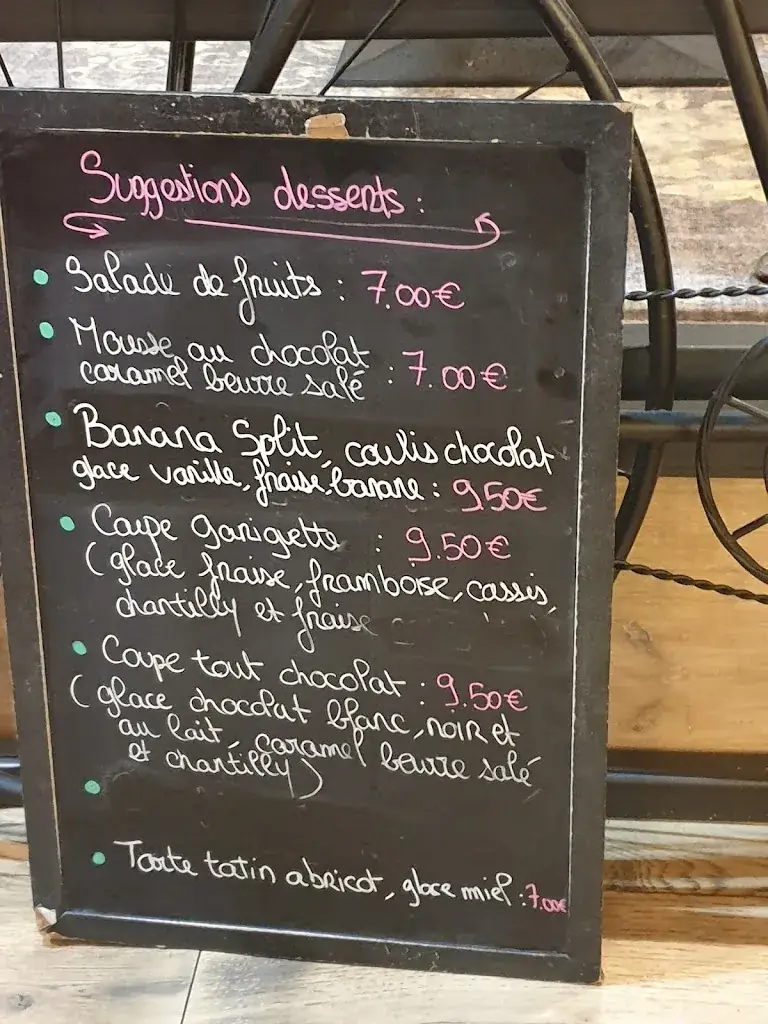 Suggestions desserts :
Salade de fruits : 7.00€
Mousse au chocolat
caramel beurre salé : 7.00€
Banana Split, coulis chocolat
glace vanille, fraise, banane : 9.50€
Coupe garigette : 9.50€
(glace fraise, framboise, cassis,
chantilly et fraise
Coupe tout chocolat : 9.50€
(glace chocolat blanc, noir et
au lait, caramel beurre salé
et chantilly)
Tarte tatin abricot, glace miel : 7.00€